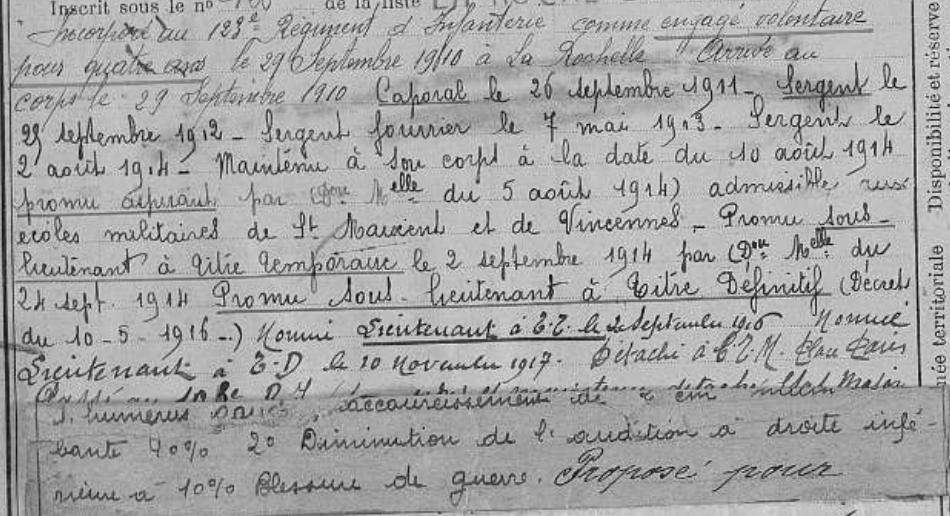 Inscrit sous le nº 100 de la liste
Incorporé au 123e Régiment d'Infanterie comme engagé volontaire
pour quatre ans le 29 Septembre 1910 à La Rochelle Arrivé au
corps le 29 Septembre 1910 Caporal le 26 septembre 1911 - Sergent le
29 septembre 1912 - Sergent fourrier le 7 mai 1913 - Sergent le
2 août 1914 - Maintenu à son corps à la date du 10 août 1914
promu aspirant par (Don Melle du 5 août 1914) admissible aux
écoles militaires de St Maixent et de Vincennes - Promu sous-
lieutenant à titre temporaire le 2 septembre 1914 par (Don Melle du
24 sept. 1914 Promu sous-lieutenant à Titre Définitif (Décret
du 10-5-1916-) Nommé Lieutenant à T.T. le 2 Septembre 1916 Nommé
Lieutenant à T.D le 10 Novembre 1917. Détaché à Paris
Passé au
humérus accourcissement de cm
bante 40% 2º Diminution de l'audition à droite infé-
rieure à 10% Blessure de guerre. Proposé pour
Disponibilité et réserve
née territoriale